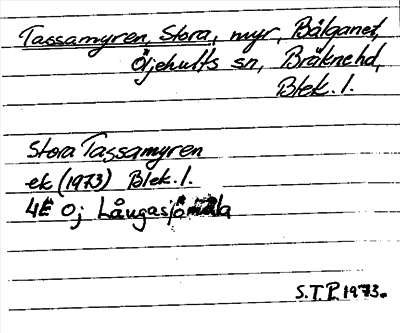 Tassamyren, Stora, myr, Bålganet,
Öljehults sn, Bräkne hd,
Blek. l.
Stora Tassamyren
ek (1973) Blek. l.
4E 0j Långasjömåla
S.T.P. 1973.